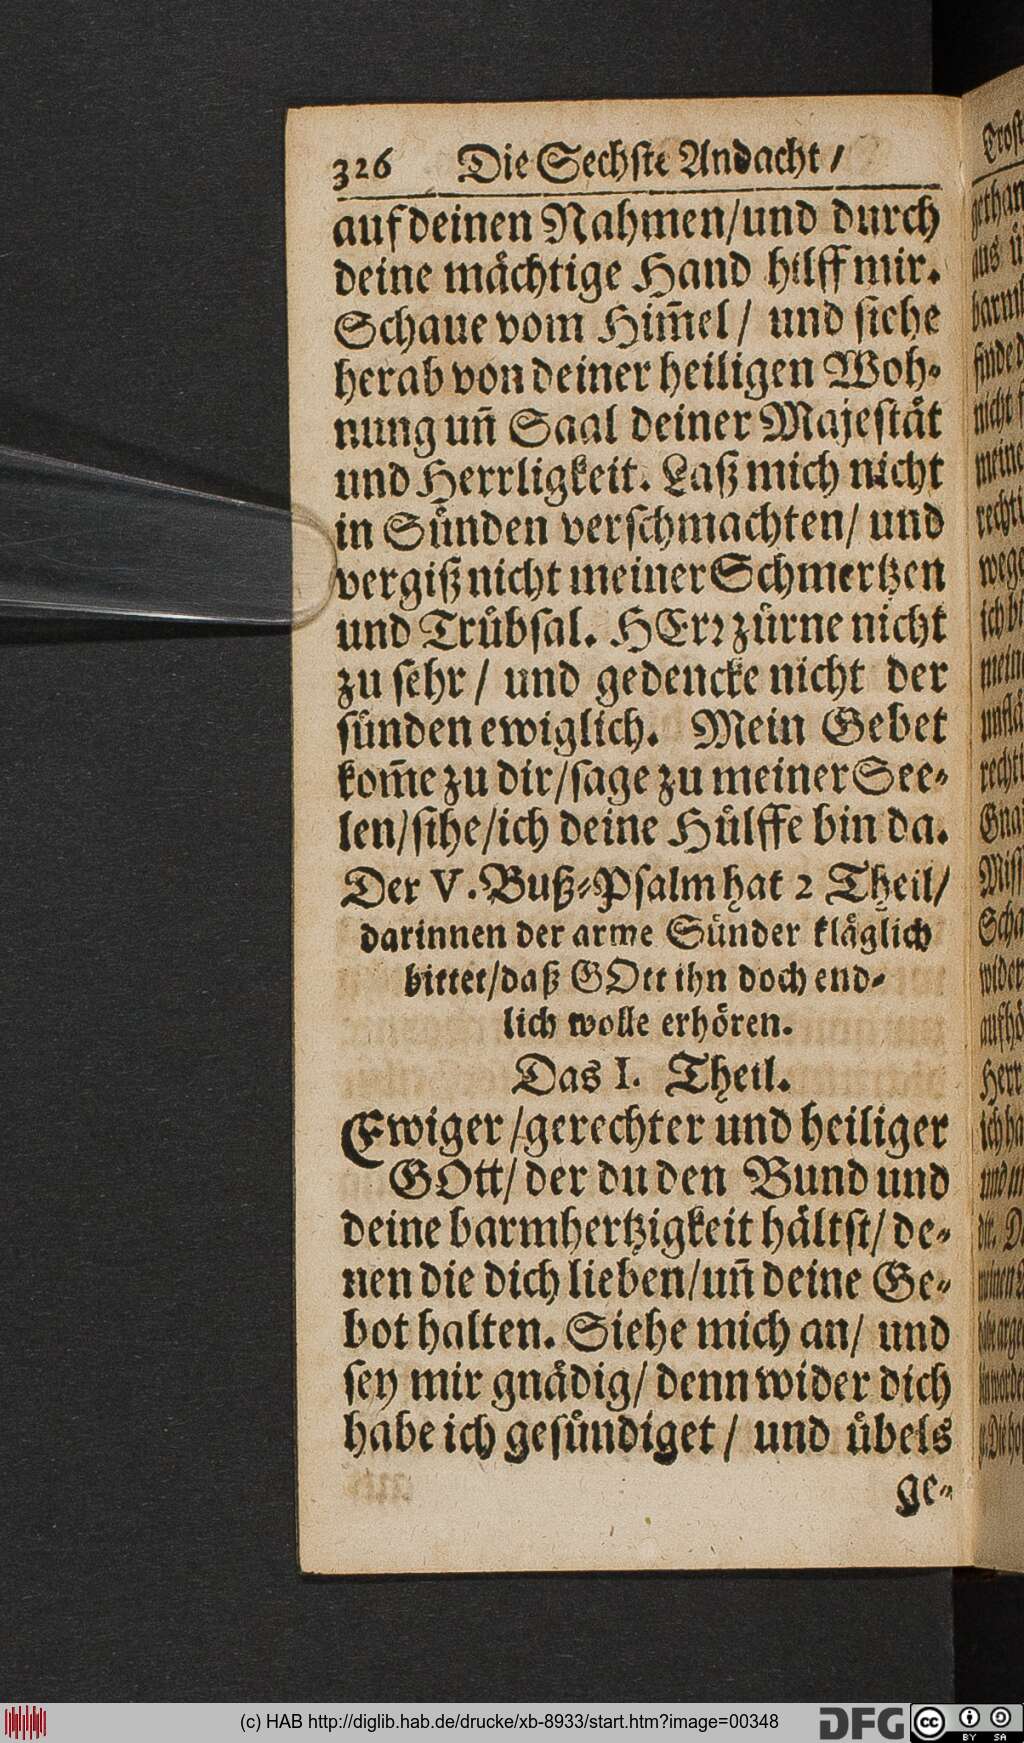 326 Die Sechste Andacht /
auf deinen Nahmen/und durch
deine mächtige Hand hilff mir.
Schaue vom Him̄el / und siehe
herab von deiner heiligen Woh-
nung un̄ Saal deiner Majestät
und Herrligkeit. Laß mich nicht
in Sünden verschmachten/ und
vergiß nicht meiner Schmertzen
und Trübsal. HErr zürne nicht
zu sehr / und gedencke nicht der
sünden ewiglich. Mein Gebet
kom̄e zu dir/sage zu meiner See-
len/sihe/ich deine Hülffe bin da.
Der V. Buß-Psalm hat 2 Theil/
darinnen der arme Sünder kläglich
bittet/daß GOtt ihn doch end-
lich wolle erhören.
Das I. Theil.
Ewiger /gerechter und heiliger
GOtt/ der du den Bund und
deine barmhertzigkeit hältst/ de-
nen die dich lieben/un̄ deine Ge-
bot halten. Siehe mich an/ und
sey mir gnädig/ denn wider dich
habe ich gesündiget / und übels
ge-
(c) HAB http://diglib.hab.de/drucke/xb-8933/start.htm?image=00348
DFG
cc BY SA